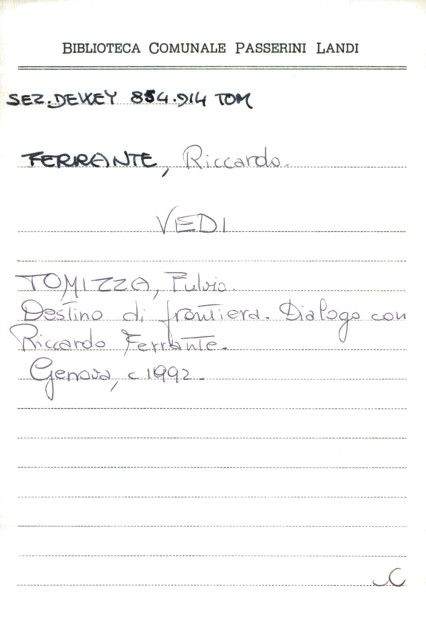 BIBLIOTECA COMUNALE PASSERINI LANDI
SEZ. DEWEY 854.914 TOM
FERRANTE, Riccardo.
VEDI
TOMIZZA, Fulvio.
Destino di frontiera. Dialogo con
Riccardo Ferrante.
Genova, c1992.